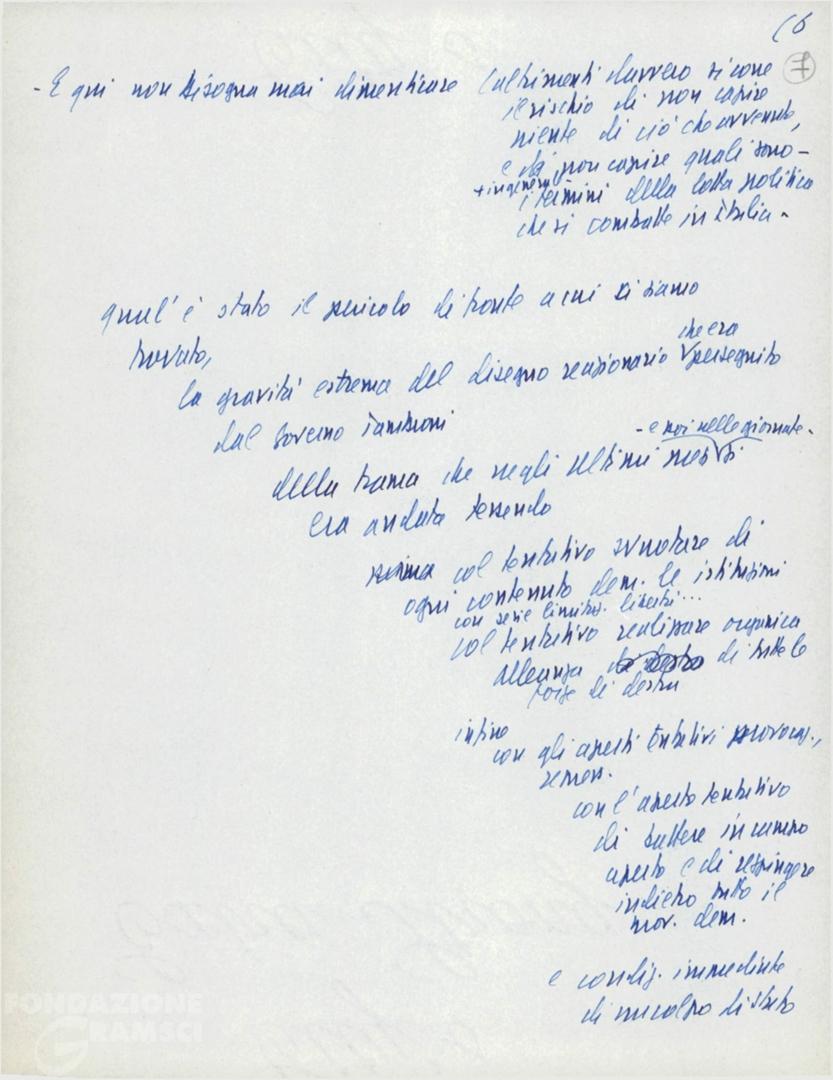 16
7
- E qui non bisogna mai dimenticare (altrimenti davvero si corre
il rischio di non capire
niente di ciò che avvenuto,
e di non capire quali sono -
+ in genere
i termini della lotta politica
che si combatte in Italia -
qual'è stato il pericolo di fronte a cui ci siamo
trovato,
la gravità estrema del disegno reazionario che era perseguito
dal Governo Tambroni
- e poi nelle giornate -
della trama che negli ultimi mesi si
era andata tessendo
prima col tentativo svuotare di
ogni contenuto dem. le istituzioni
con serie limitaz. libertà...
col tentativo realizzare organica
alleanza di tutte le
forze di destra
infine
con gli aperti tentativi provocaz.,
repress.
con l'aperto tentativo
di battere in campo
aperto e di respingere
indietro tutto il
mov. dem.
e condiz. immediate
di un colpo di stato
FONDAZIONE
GRAMSCI